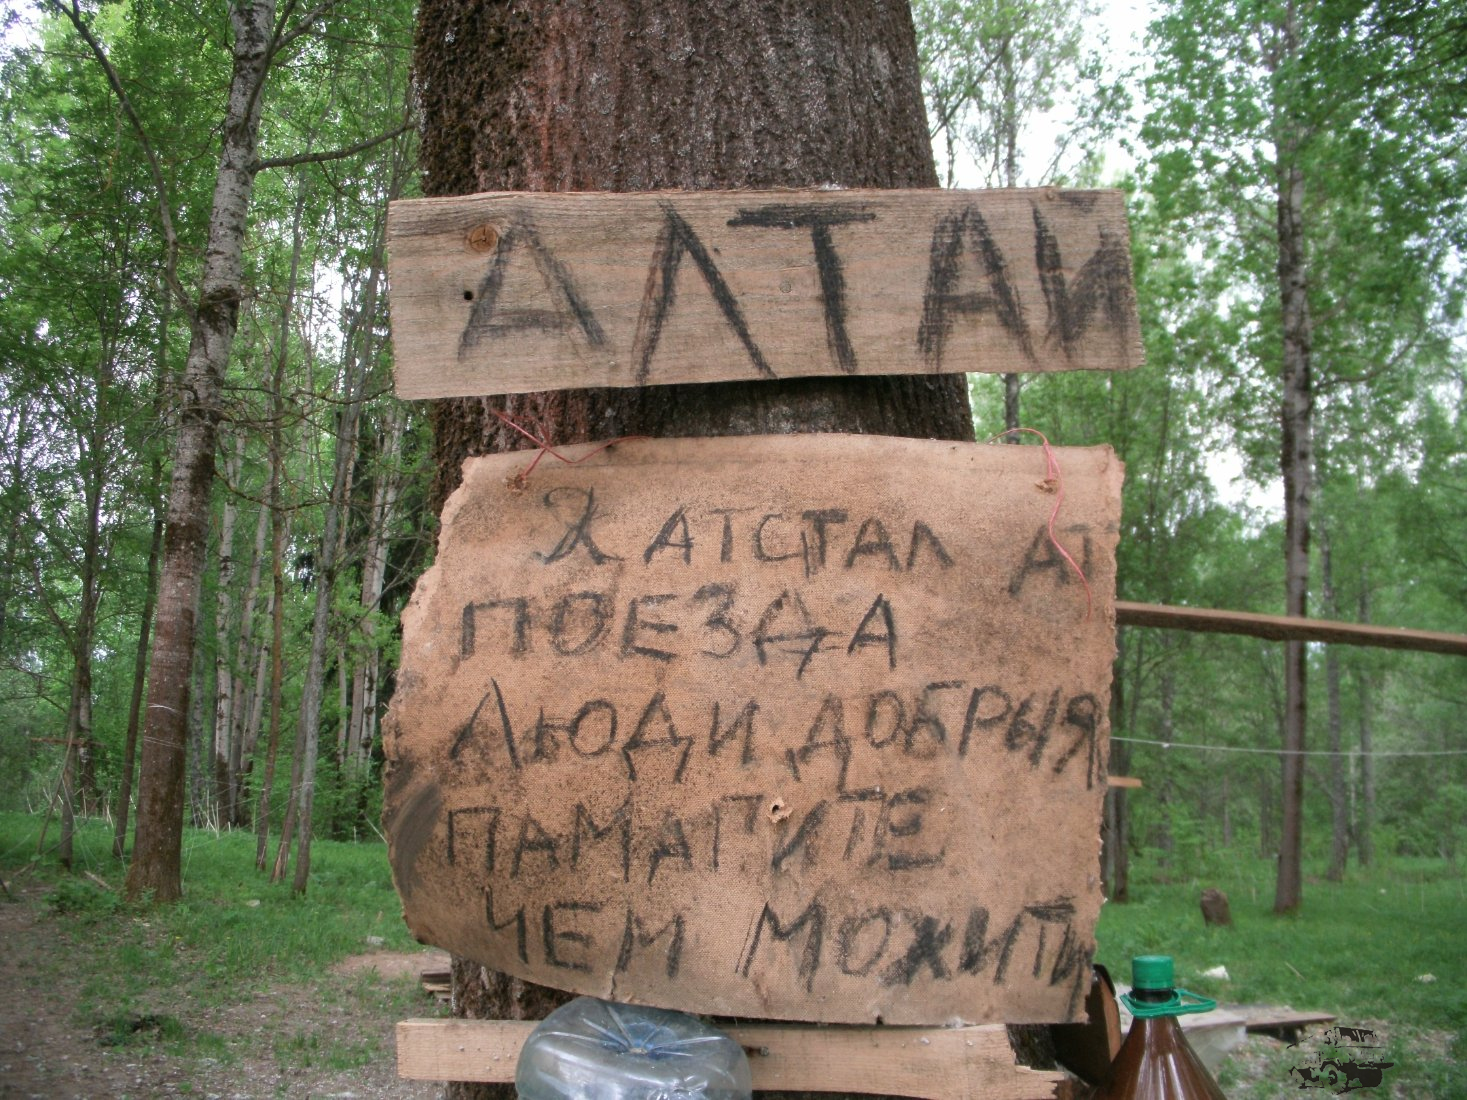 АЛТАЙ
Я АТСТАЛ АТ
ПОЕЗДА
ЛЮДИ ДОБРЫЯ
ПАМАГИТЕ
ЧЕМ МОЖИТИ